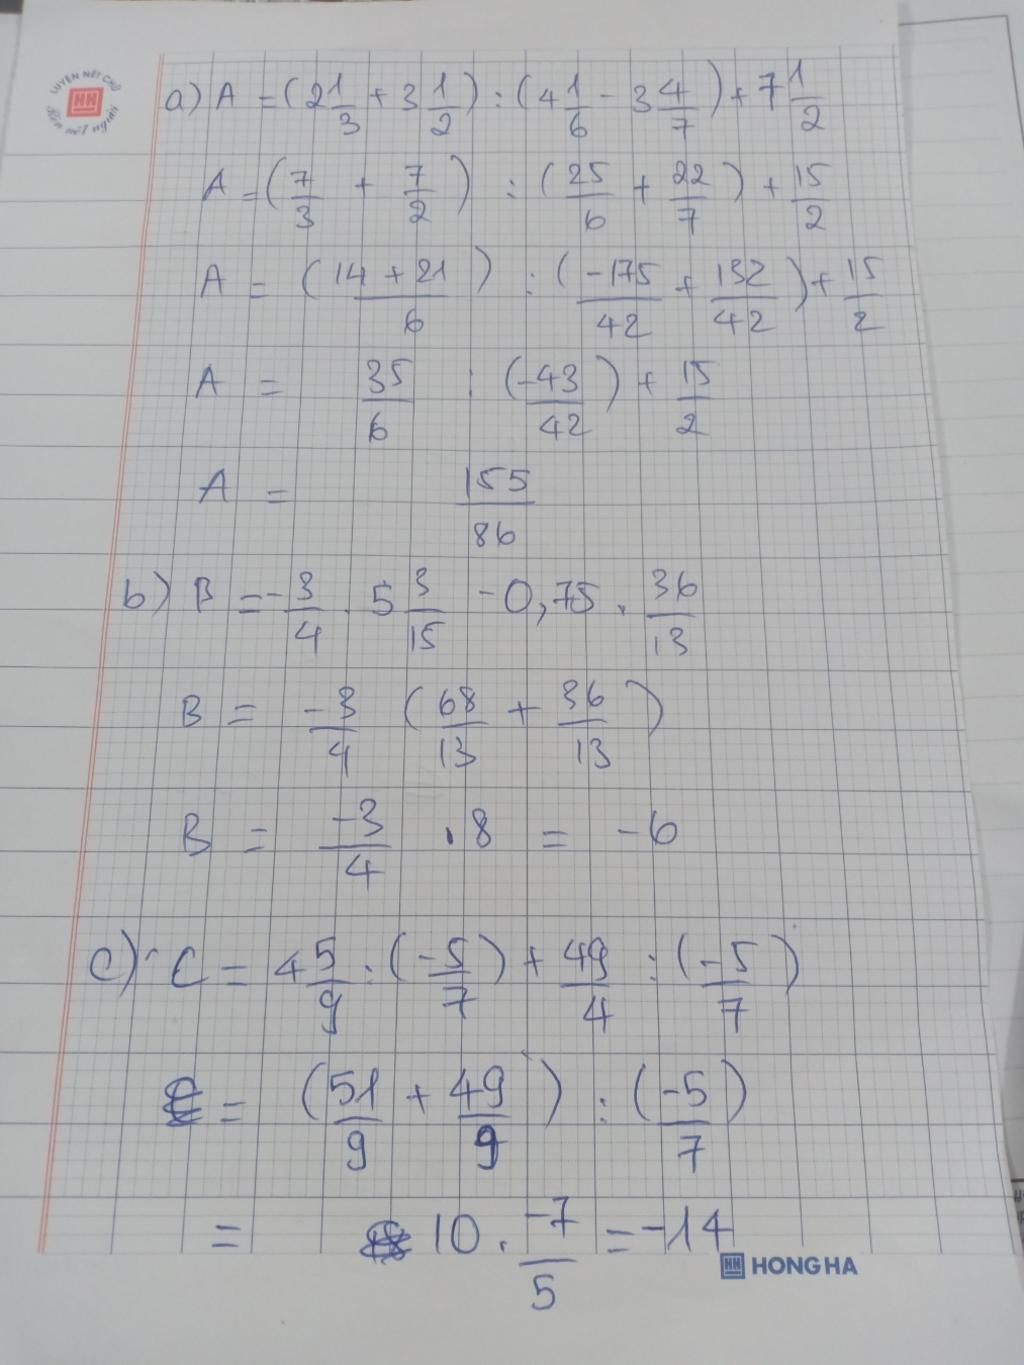 LUYỆN NÉT CHỮ
Rèn nết người
a) A = (2 1/3 + 3 1/2) : (4 1/6 - 3 4/7) + 7 1/2
A = (7/3 + 7/2) : (25/6 + 22/7) + 15/2
A = (14 + 21 / 6) : (-175/42 + 132/42) + 15/2
A = 35/6 : (-43/42) + 15/2
A = 155/86
b) B = -3/4 . 5 3/15 - 0,75 . 36/13
B = -3/4 (68/13 + 36/13)
B = -3/4 . 8 = -6
c) C = 4 5/9 : (-5/7) + 49/4 : (-5/7)
= (51/9 + 49/9) : (-5/7)
= 10 . -7/5 = -14
HONG HA